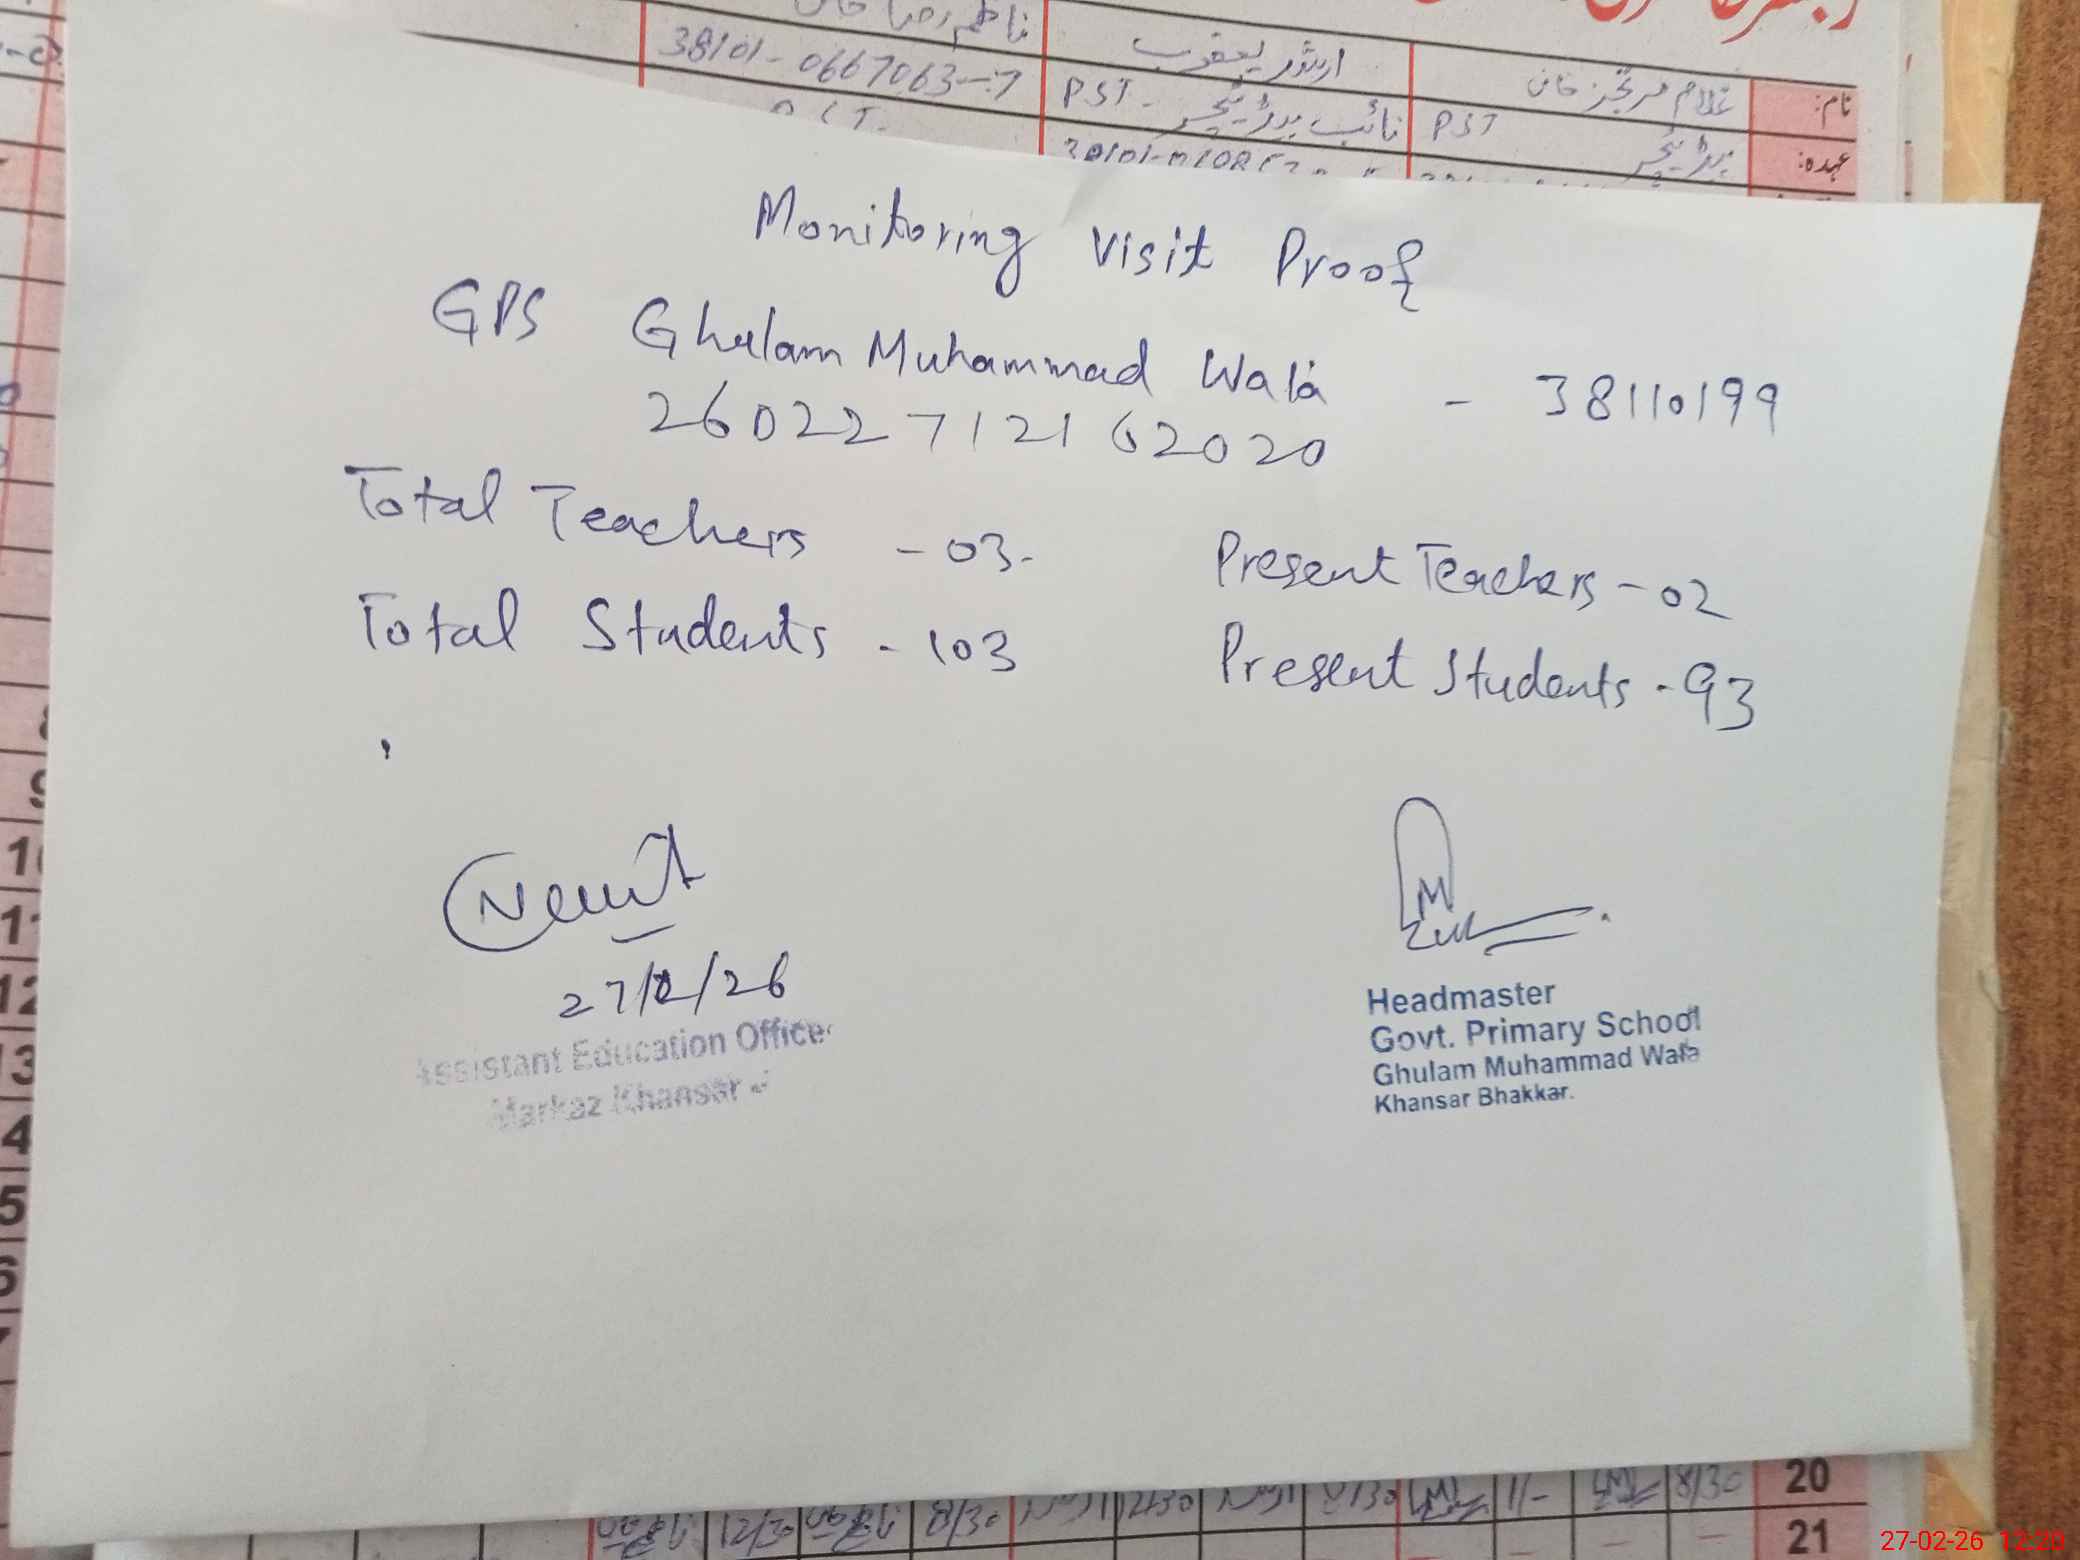 38101-0667063-7
ارشد یعقوب
نام:
PST
نائب ہیڈ ٹیچر
PST
ہیڈ ٹیچر
عہدہ:
Monitoring Visit Proof
GPS Ghulam Muhammad Wala - 38110199
26022712162020
Total Teachers - 03-
Present Teachers - 02
Total Students - 103
Present Students - 93
27/2/26
Assistant Education Officer
Markaz Khansar
Headmaster
Govt. Primary School
Ghulam Muhammad Wala
Khansar Bhakkar.
9
10
11
12
13
4
5
6
8/30
20
21
27-02-26 12:20